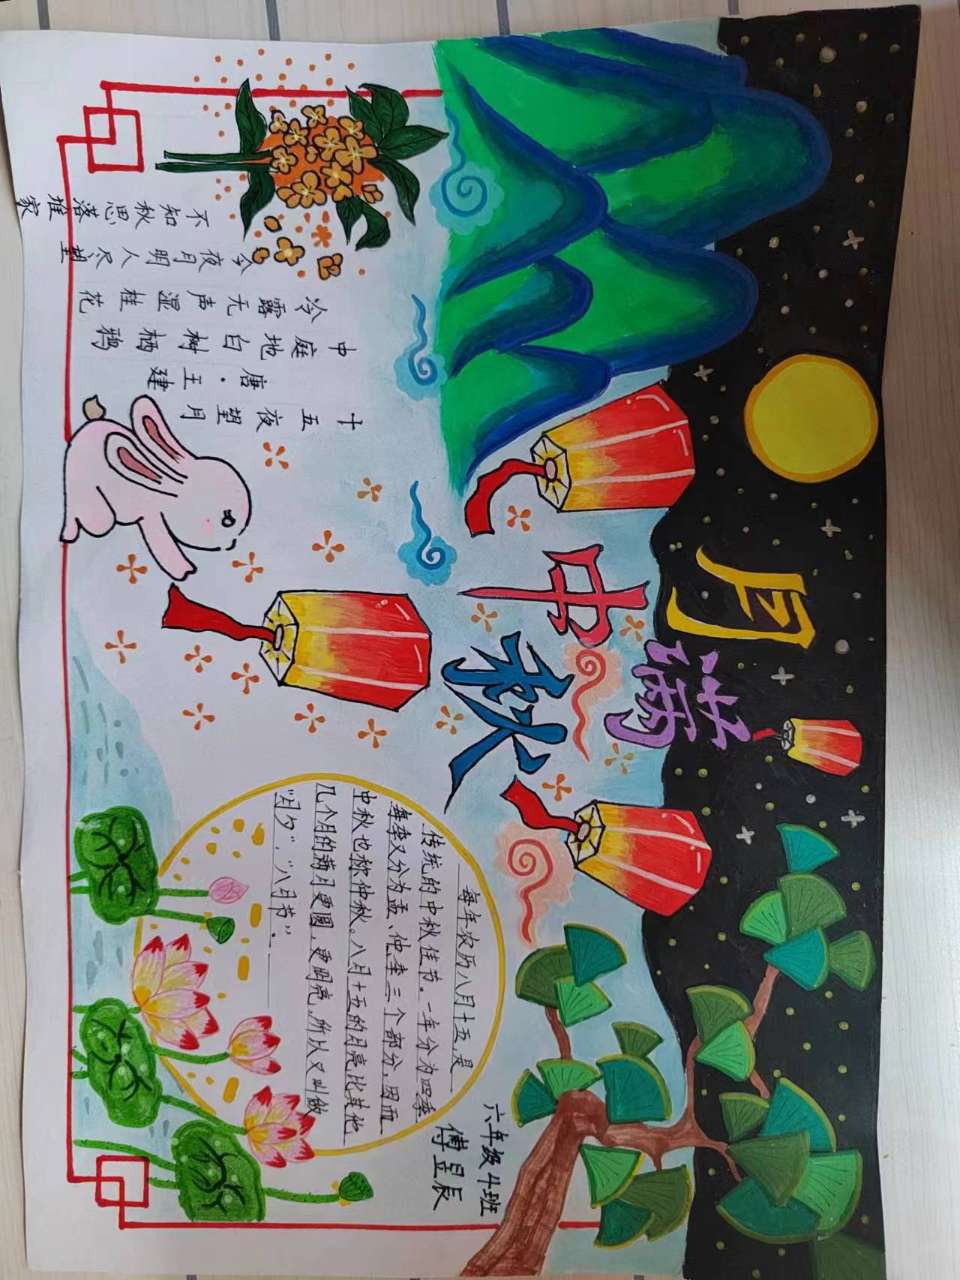 月满
中秋
十五夜望月
唐·王建
中庭地白树栖鸦
冷露无声湿桂花
今夜月明人尽望
不知秋思落谁家
每年农历八月十五,是
传统的中秋佳节。一年分为四季
每季又分为孟、仲、季三个部分,因而
中秋也称仲秋。八月十五的月亮比其他
几个月的满月更圆,更明亮,所以又叫做
“月夕”,“八月节”。
六年级4班
傅昱辰